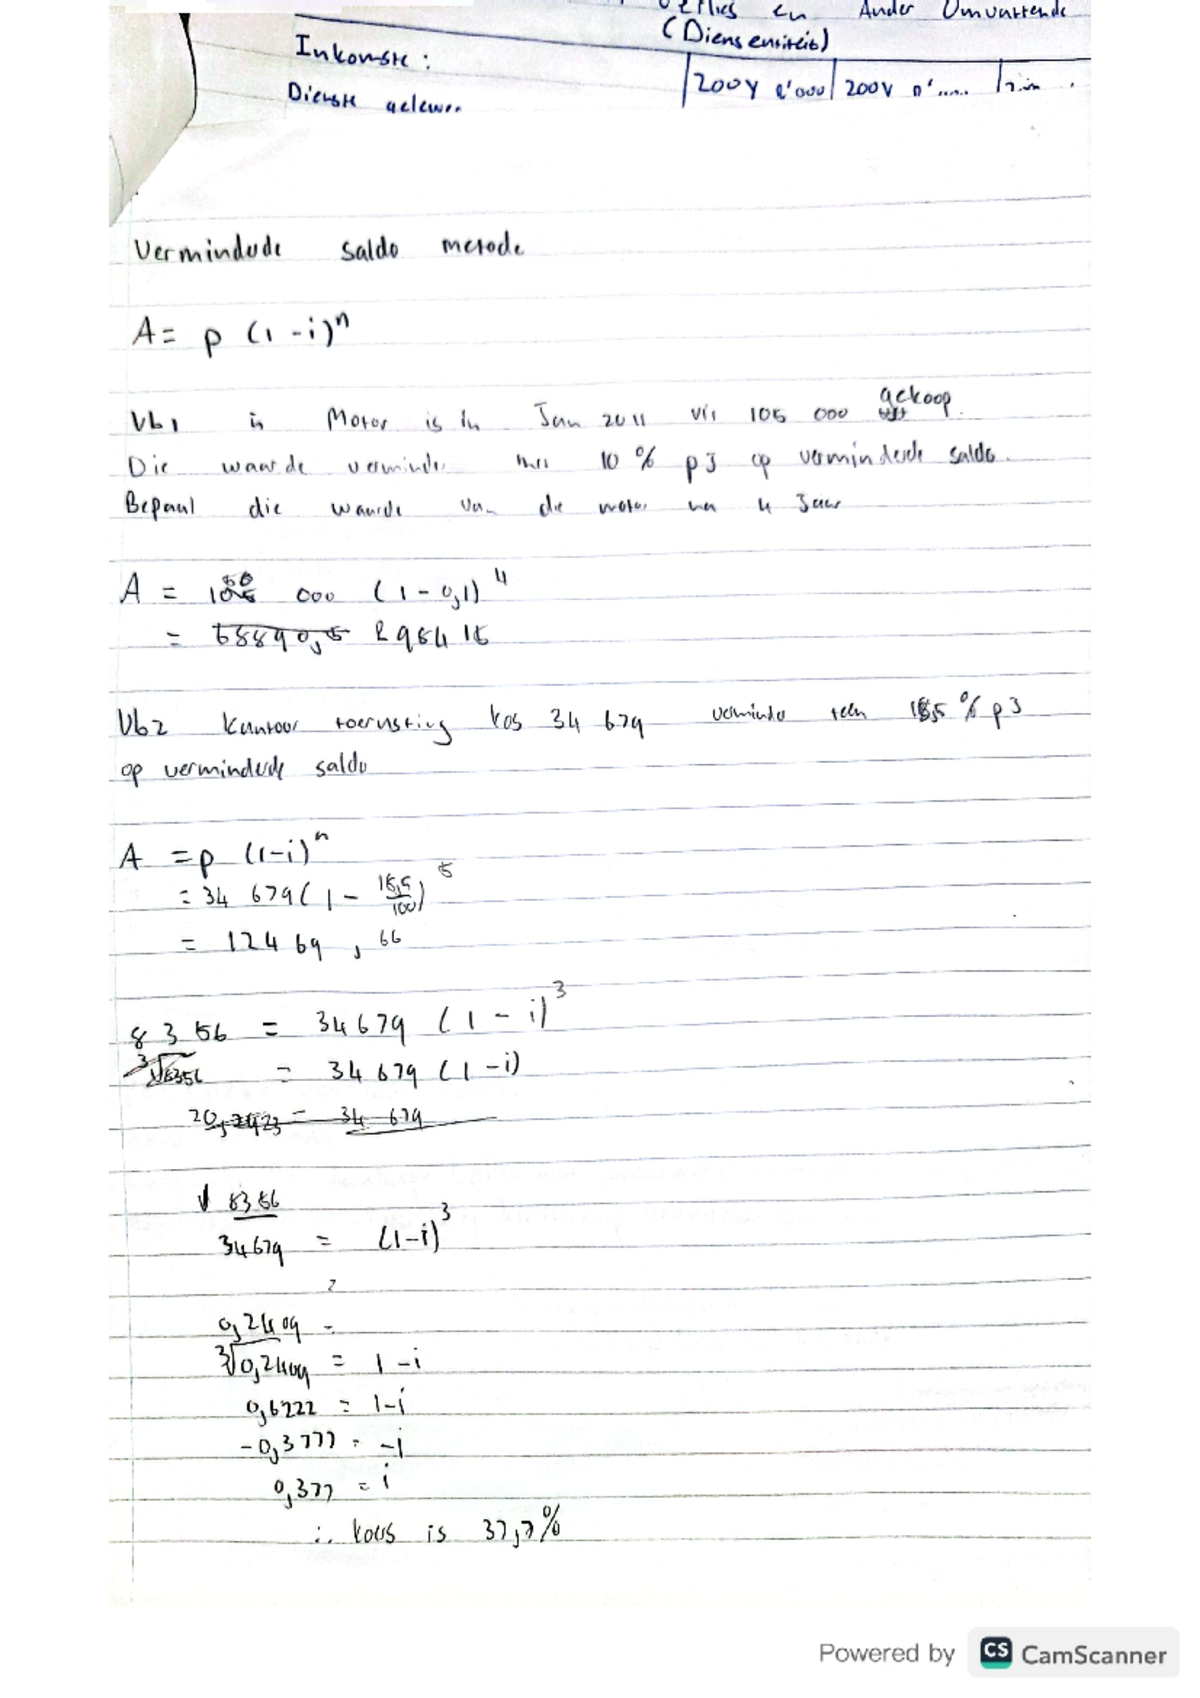 en Ander Omvattende
(Diens entiteit)
Inkomste :
200Y R'000 200V
Dienste gelewer
Verminderde saldo metode
A = p (1 - i)^n
Vb 1 'n Motor is in Jan 2011 vir 105 000 gekoop.
Die waarde verminder met 10 % pj op verminderde saldo.
Bepaal die waarde van die motor na 4 Jaar
A = 000 (1 - 0,1)^4
= 68890,5 R 984 15
Vb 2 Kantoor toerusting kos 34 679 verminder teen 18,5 % pj
op verminderde saldo
A = p (1-i)^n
= 34 679 ( 1 - 18,5/100)^5
= 124 69 , 66
8 3 56 = 34679 ( 1 - i)^3
∛8356 = 34 679 (1 - i)
20,2923 = 34 679
√ 8356
34679 = (1-i)^3
0,2409 =
∛0,2409 = 1 - i
0,6222 = 1-i
-0,3777 = -i
0,377 = i
∴ koers is 37,7%
Powered by CS CamScanner